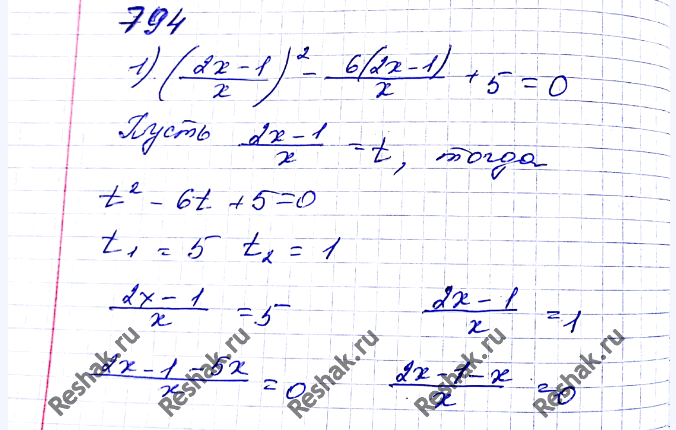 794
1) ((2x-1)/x)² - 6(2x-1)/x + 5 = 0
Пусть (2x-1)/x = t, тогда
t² - 6t + 5 = 0
t₁ = 5 t₂ = 1
(2x-1)/x = 5 (2x-1)/x = 1
(2x-1-5x)/x = 0 (2x-1-x)/x = 0
Reshak.ru Reshak.ru Reshak.ru Reshak.ru Reshak.ru